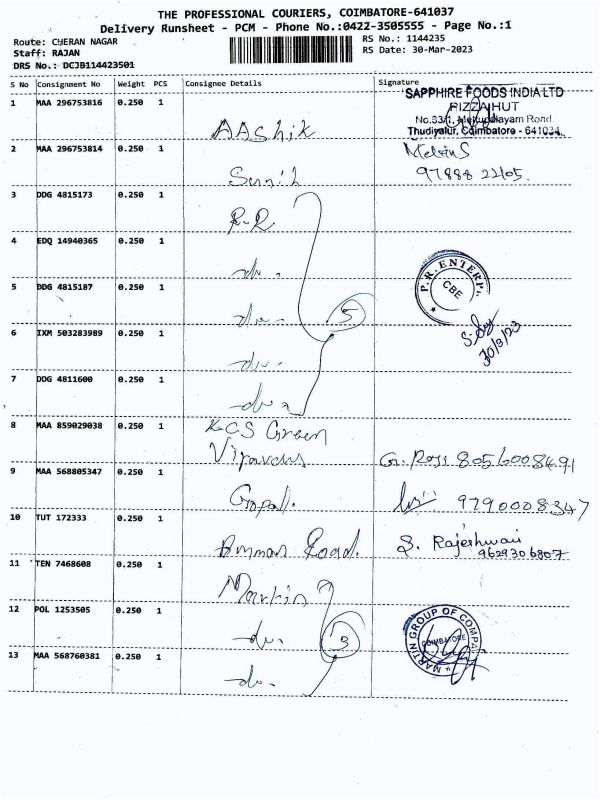 THE PROFESSIONAL COURIERS, COIMBATORE-641037
Delivery Runsheet - PCM - Phone No.:0422-3505555 - Page No.:1
Route: CHERAN NAGAR
RS No.: 1144235
Staff: RAJAN
RS Date: 30-Mar-2023
DRS No.: DCJB114423501
S No Consignment No Weight PCS Consignee Details Signature
SAPPHIRE FOODS INDIA LTD
1 MAA 296753816 0.250 1
PIZZA HUT
No.33/1, Mettupalayam Road
AAshik
Thudiyalur, Coimbatore - 641034
2 MAA 296753814 0.250 1
Melvin S
Sunil 97888 22105
3 DDG 4815173 0.250 1
P.R.
4 EDQ 14940365 0.250 1
do.
P.R. ENTERP.
CBE
5 DDG 4815187 0.250 1
do. 5
30/3/23
6 IXM 503283989 0.250 1
do.
7 DDG 4811600 0.250 1
do
8 MAA 859029038 0.250 1 KCS Green
8056008491
9 MAA 568805347 0.250 1
Gopal. 9790008347
10 TUT 172333 0.250 1
Amman Road. S. Rajeshwari
9629306807
11 TEN 7468608 0.250 1
Martin
12 POL 1253505 0.250 1
do. 3
MARTIN GROUP OF COMPA
COIMBATORE
13 MAA 568760381 0.250 1
do.